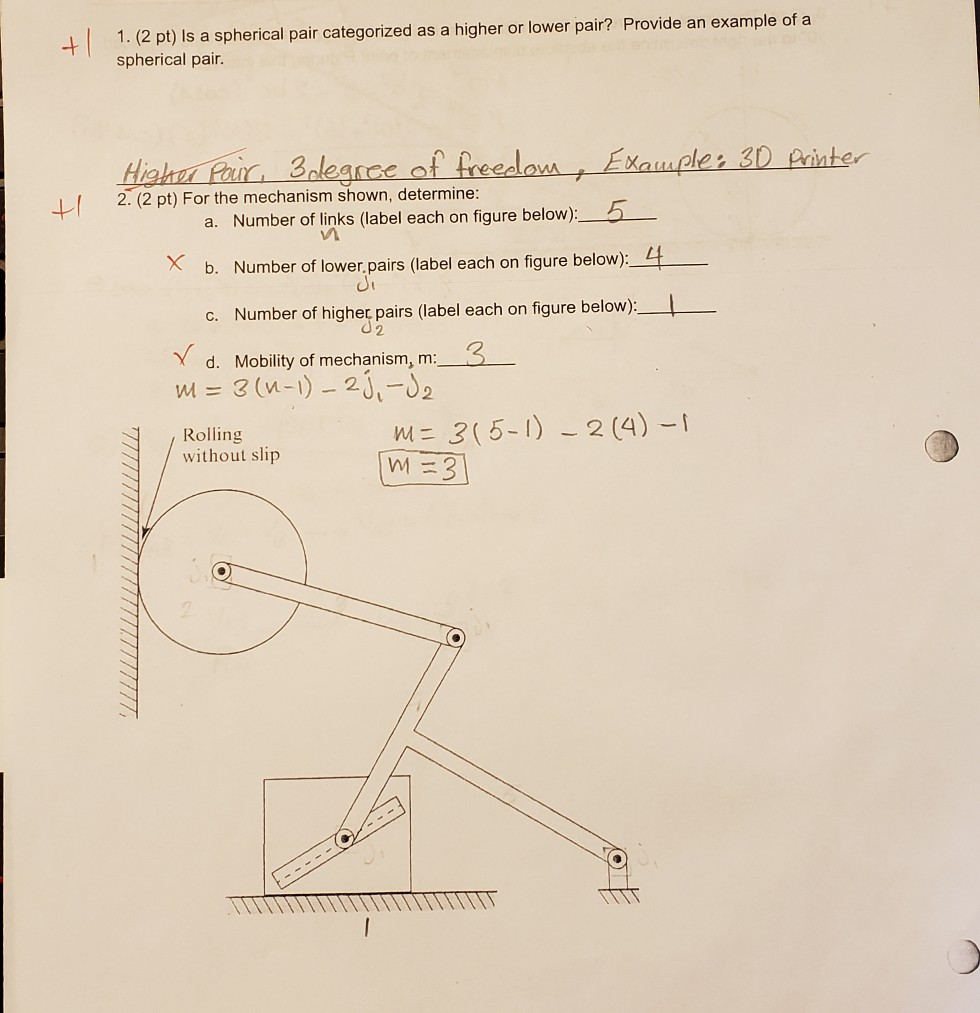 +1 1. (2 pt) Is a spherical pair categorized as a higher or lower pair? Provide an example of a
spherical pair.
Higher Pair, 3 degree of freedom, Example: 3D printer
+1 2. (2 pt) For the mechanism shown, determine:
a. Number of links (label each on figure below): 5
n
X b. Number of lower pairs (label each on figure below): 4
J1
c. Number of higher pairs (label each on figure below): 1
J2
d. Mobility of mechanism, m: 3
m = 3(n-1) - 2j1 - J2
Rolling
without slip
m = 3(5-1) - 2(4) - 1
m = 3
2
1